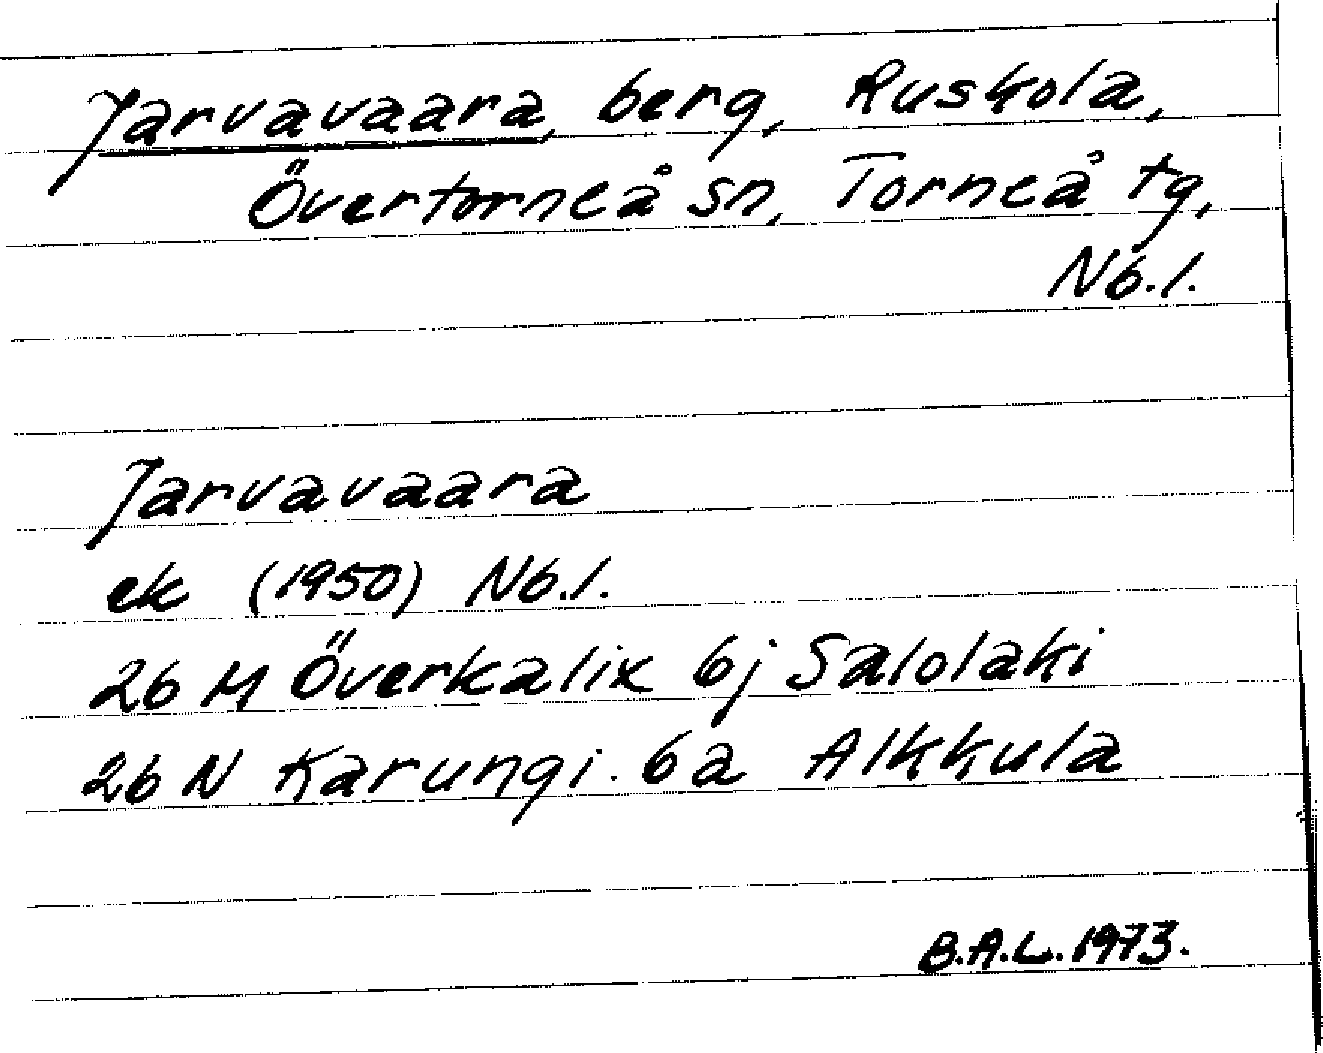 Jarvavaara, berg, Ruskola,
Övertorneå sn, Torneå tg,
Nb.l.
Jarvavaara
ek (1950) Nb.l.
26 M Överkalix 6j Salolaki
26 N Karungi. 6a Alkkula
B.A.L. 1973.